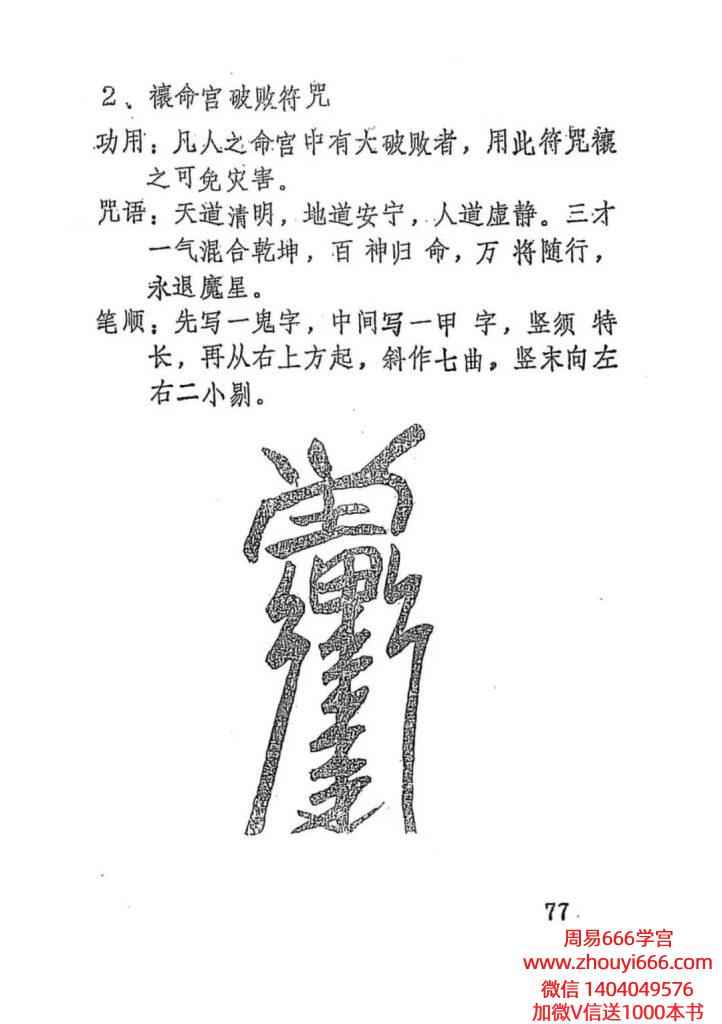 2、禳命宫破败符咒
功用：凡人之命宫中有大破败者，用此符咒禳
之可免灾害。
咒语：天道清明，地道安宁，人道虚静。三才
一气混合乾坤，百神归命，万将随行，
永退魔星。
笔顺：先写一鬼字，中间写一甲字，竖须特
长，再从右上方起，斜作七曲，竖末向左
右二小剔。
77
周易666学宫
www.zhouyi666.com
微信 1404049576
加微V信送1000本书